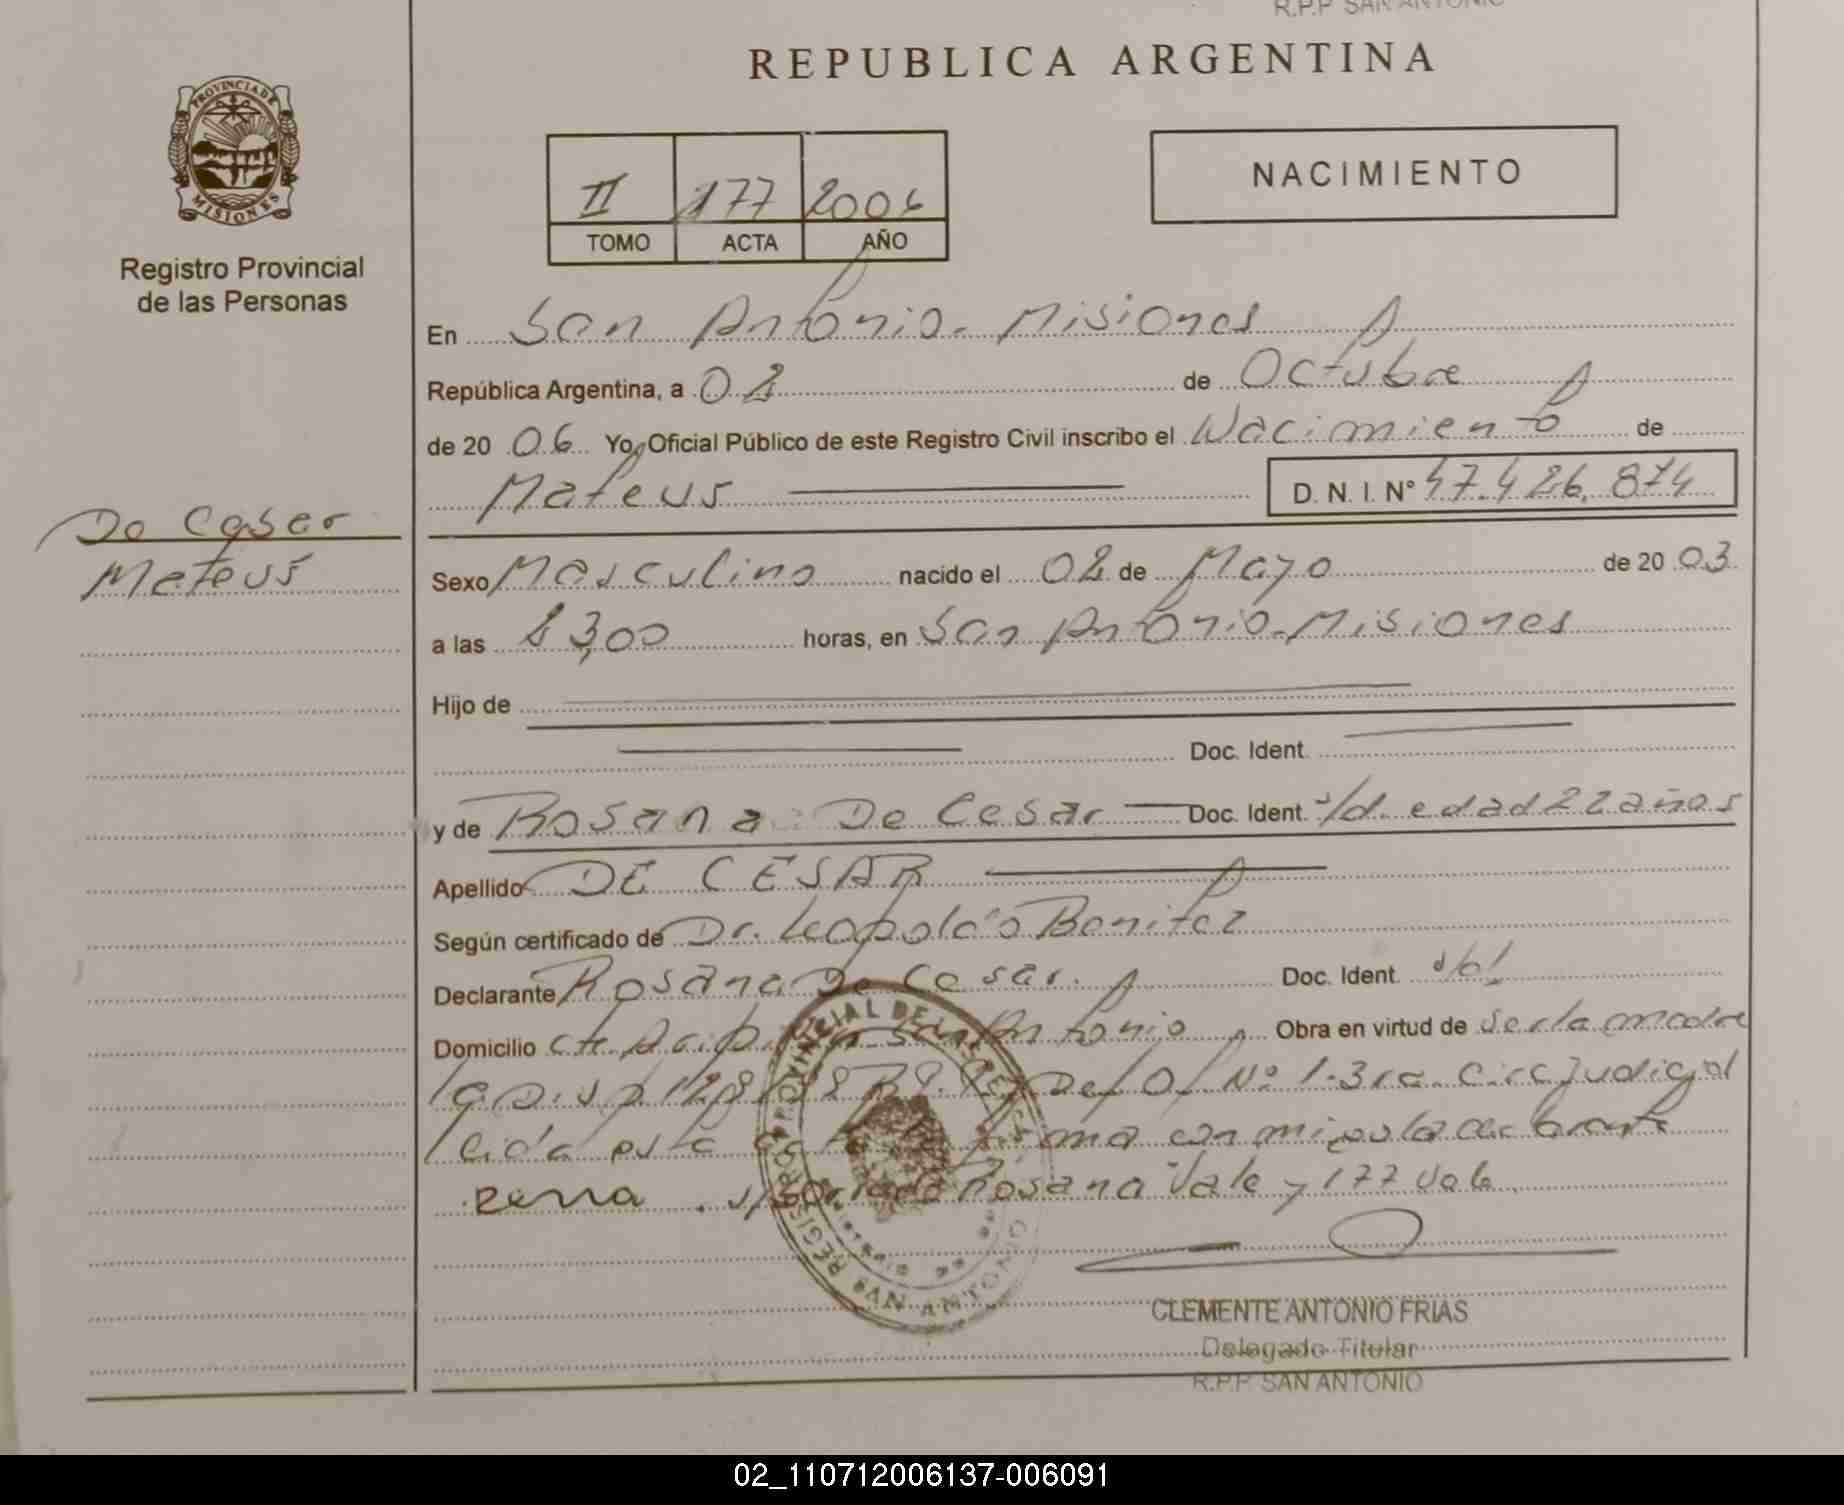 R.P.P. SAN ANTONIO
REPUBLICA ARGENTINA
PROVINCIA DE MISIONES
Registro Provincial
de las Personas
II 177 2006
TOMO ACTA AÑO
NACIMIENTO
En San Antonio - Misiones
República Argentina, a 02 de Octubre
de 20 06 Yo, Oficial Público de este Registro Civil inscribo el Nacimiento de
Mateus D. N. I. N° 47.426.874
De Cesar
Mateus
Sexo Masculino nacido el 02 de Mayo de 20 03
a las 23,00 horas, en San Antonio - Misiones
Hijo de
Doc. Ident.
y de Rosana De Cesar Doc. Ident. s/d. edad 22 años
Apellido DE CESAR
Según certificado de Dr. Leopoldo Benitez
Declarante Rosana De Cesar. Doc. Ident.
Domicilio San Antonio Obra en virtud de ser la madre
Def. Of. N° 1-3ra. Circ. Judicial
leida esta acta la firma con migo la declarante
Rosana Vale y 177 Vale
REGISTRO PROVINCIAL DE LAS PERSONAS
SAN ANTONIO
CLEMENTE ANTONIO FRIAS
Delegado Titular
R.P.P. SAN ANTONIO
02_110712006137-006091